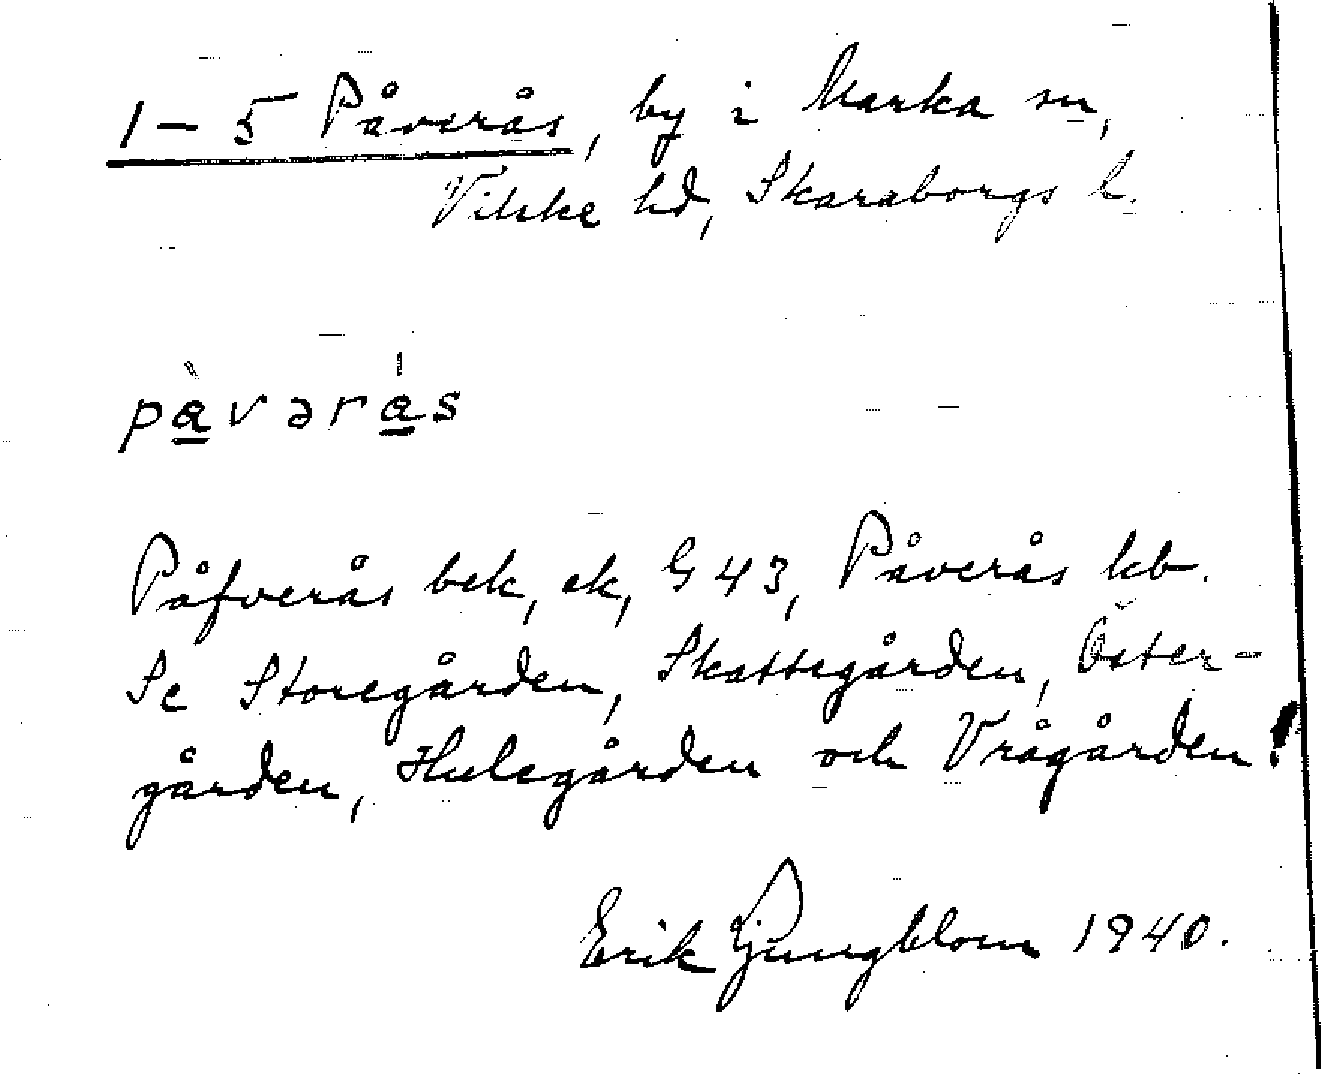 1 – 5 Påverås, by i Marka sn,
Vilske hd, Skaraborgs l.
pàvərás
Påfverås bek, ek, G 43, Påverås kb.
Se Storegården, Skattegården, Öster-
gården, Hulegården och Vrågården!
Erik Ljungblom 1940.